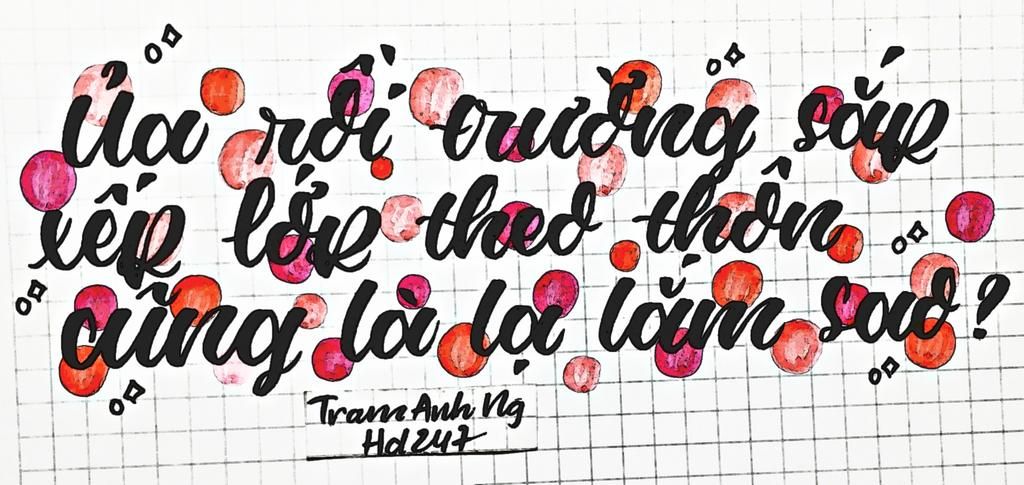 Ủa rồi trường sắp
xếp lớp theo thôn
cũng là lạ lắm sao?
Tram Anh Ng
Hd247